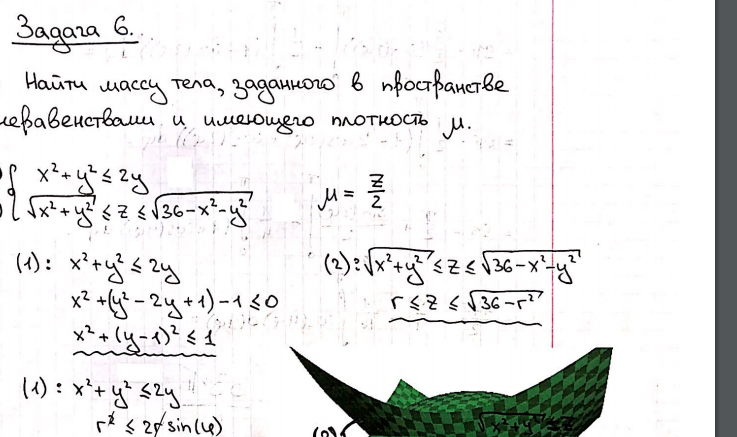 Задача 6.
Найти массу тела, заданного в пространстве
неравенствами и имеющего плотность μ.
x² + y² ≤ 2y
√(x²+y²) ≤ z ≤ √(36-x²-y²) μ = z/2
(1): x² + y² ≤ 2y (2): √(x²+y²) ≤ z ≤ √(36-x²-y²)
x² + (y² - 2y + 1) - 1 ≤ 0 r ≤ z ≤ √(36-r²)
x² + (y-1)² ≤ 1
(1): x² + y² ≤ 2y
r² ≤ 2r sin(φ)